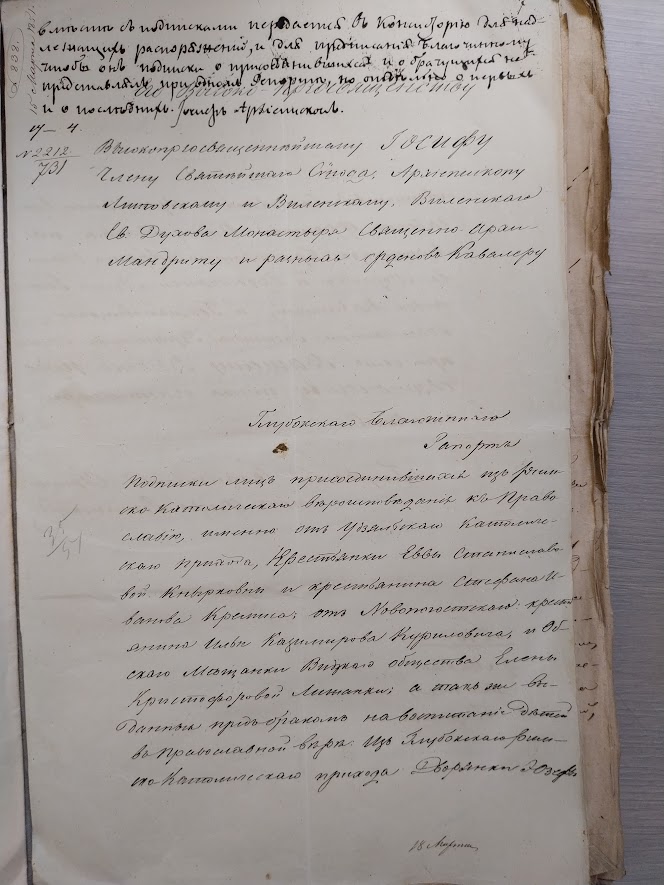 вмѣстѣ съ подписками передается въ Консисторію для над-
лежащихъ распоряженій, и для предписанія Благочинному
чтобы онъ подписки о присоединившихся и обращующихся не
представлялъ при одномъ рапортѣ, но отдѣльно о первыхъ
и о послѣднихъ. Іосифъ Архіепископъ.
15 Марта
№ 2212
731
Высокопреосвященнѣйшему Іосифу
Члену Святѣйшаго Сѵнода, Архіепископу
Литовскому и Виленскому, Виленскаго
Св. Духова Монастыря Священно-Архи-
мандриту и разныхъ орденовъ Кавалеру
Глубокскаго Благочиннаго
Рапортъ
Подписки лицъ присоединившихся изъ Рим-
ско Католическаго вѣроисповеданія къ Право-
славію, именно отъ Удзялскаго Католиче-
скаго прихода, Крестьянки Еввы Станиславо-
вой и крестьянина Стефана И-
ванова Кремиса, отъ Новопогостскаго кресть-
янина Ильи Казимирова Куриловича, и
скаго Мещанки общества Елены
Христофоровой а также вы-
данныя предъ бракомъ на воспитаніе дѣтей
въ Православной вѣрѣ: Изъ Глубокскаго Рим-
ско Католическаго прихода Дворянки Іозефы
35
51
18 Марта